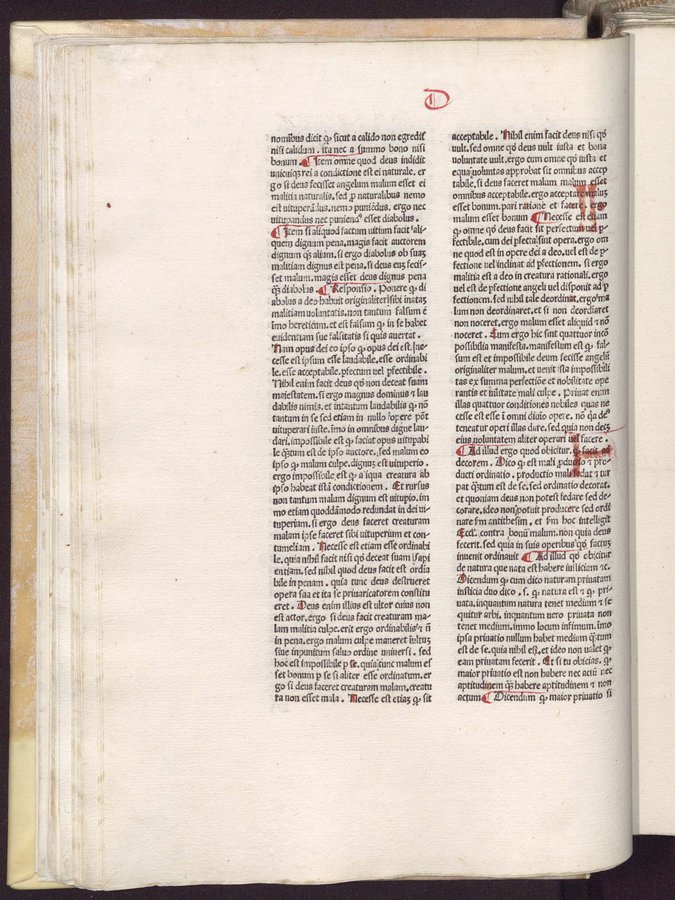 D
nomĩbus dicit ꝙ sicut a calido non egredit᷑
nisi calidum. ita nec a summo bono nisi
bonum. ¶ Item omne quod deus indidit
unicuiqꝫ rei a conditione est ei naturale. er
go si deus fecisset angelum malum esset ei
malitia naturalis. sed ꝓ naturalibus nemo
est uituperãdus. nemo puniẽdus. ergo nec
uituꝑandus nec puniendꝰ esset diabolus.
¶ Item si aliquod factum uitium facit ali-
quem dignum pena. magis facit auctorem
dignum q̃ alium. si ergo diabolus ob suaꝫ
malitiam dignus est pena. si deus euꝫ fecis-
set malum. magis esset deus dignus pena
q̃ diabolus. ¶ Responsio. Ponere ꝙ di
abolus a deo habuit originaliter sibi inataꝫ
malitiam uoluntatis. non tantum falsum ẽ
imo hereticum. et est falsum ꝙ in se habet
euidentiam sue falsitatis si quis auertat.
Nam opus dei eo ipso ꝙ opus dei est. ne-
cesse est ipsum esse laudabile. esse ordinabi
le. esse acceptabile. ꝑfectum uel ꝑfectibile.
Nihil enim facit deus qõ non deceat suam
maiestatem. si ergo magnus dominus ⁊ lau
dabilis nimis. et intantum laudabilis ꝙ nõ
tantum in se sed etiam in nullo opere põt
uituperari iuste. imo in omnibus digne lau-
dari. impossibile est ꝙ faciat opus uituꝑabi
le q̃tum est de ipso auctore. sed malum eo
ipso ꝙ malum culpe. dignuꝫ est uituperio.
ergo impossibile est ꝙ aliqua creatura ab
ipso habeat istã conditionem. Et rursus
non tantum malum dignum est uituꝑio. im
mo etiam quoddãmodo redundat in dei ui-
tuperium. si ergo deus faceret creaturam
malam ipse faceret sibi uituperium et con-
tumeliam. Necesse est etiam esse ordinabi
le. quia nihil facit nisi qõ deceat suam sapi
entiam. sed nihil quod deus facit est ordia
bile in penam. quia tunc deus destrueret
opera sua et ita se priuaricatorem constitu
eret. Deus enim illius est ultor cuius non
est actor. ergo si deus facit creaturam ma-
lam malitia culpe. erit ergo ordinabilis ⁊ ñ
in pena. ergo malum culpe maneret inultuꝫ
siue inpunitum saluo ordine uniuersi. sed
hoc est impossibile ꝑ se. quia tunc malum es
set bonum ꝑ se si aliter esse ordinatum. er
go si deus faceret creaturam malam. creatu
ra non esset mala. Necesse est etiaꝫ ꝙ sit
acceptabile. Nihil enim facit deus nisi qõ
uult. sed omne qõ deus uult iusta et bona
uoluntate uult. ergo cum omne qõ iusta et
equa uoluntas approbat sit omnibus accep
tabile. si deus faceret malum malum esset
omnibus acceptabile. ergo acceptare malum
esset bonum. pari ratione et facere. ergo
malum esset bonum ¶ Necesse est etiam
ꝙ omne qõ deus facit sit perfectum uel ꝑ
fectibile. cum dei ꝑfecta sint opera. ergo om
ne quod est in opere dei a deo. uel est de ꝑ-
fectione uel inclinat ad ꝑfectionem. si ergo
malitia est a deo in creatura rationali. ergo
uel est de ꝑfectione angeli uel disponit ad ꝑ
fectionem. sed nihil tale deordinat. ergo ma
lum non deordinaret. et si non deordiaret
non noceret. ergo malum esset aliquid ⁊ nõ
noceret. Cum ergo hic sint quattuor incõ
possibilia manifesta. manifestum est ꝙ fal-
sum est et impossibile deum fecisse angelũ
originaliter malum. et uenit ista impossibili
tas ex summa perfectiõe et nobilitate ope
rantis et uilitate mali culpe. Priuat enim
illas quattuor conditiones nobiles quas ne
cesse est esse in omni diuino opere. nõ q̃a deꝰ
teneatur operi illas dare. sed quia non decꝫ
eius uoluntatem aliter operari uel facere.
¶ Ad illud ergo quod obicitur. ꝙ facit ad
decorem. Dico ꝙ est mali ꝓductio et pro-
ducti ordinatio. productio mali fedat ⁊ tur
pat q̃tum est de se. sed ordinatio decorat.
et quoniam deus non potest fedare sed de-
corare. ideo non potuit producere sed ordi
nare ẜm antithesim. et ẜm hoc intelligit᷑
Eccl̃. contra bonũ malum. non quia deus
fecerit. sed quia in suis operibus qõ factuꝫ
inuenit ordinauit ¶ Ad illud qõ obicitur
de natura que nata est habere iusticiam ⁊c̃.
Dicendum ꝙ cum dico naturam priuatam
iusticia duo dico. s. ꝙ natura est ⁊ ꝙ pri-
uata. inquantum natura tenet medium ⁊ se
quitur arbi. inquantum uero priuata non
tenet medium. immo locum infimum. imo
ipsa priuatio nullum habet medium q̃tum
est de se. quia nihil est. et ideo non ualet ꝙ
eam priuatam fecerit. Et si tu obicias. ꝙ
maior priuatio est non habere nec actũ nec
aptitudinem q̃ habere aptitudinem ⁊ non
actum ¶ Dicendum ꝙ maior priuatio si